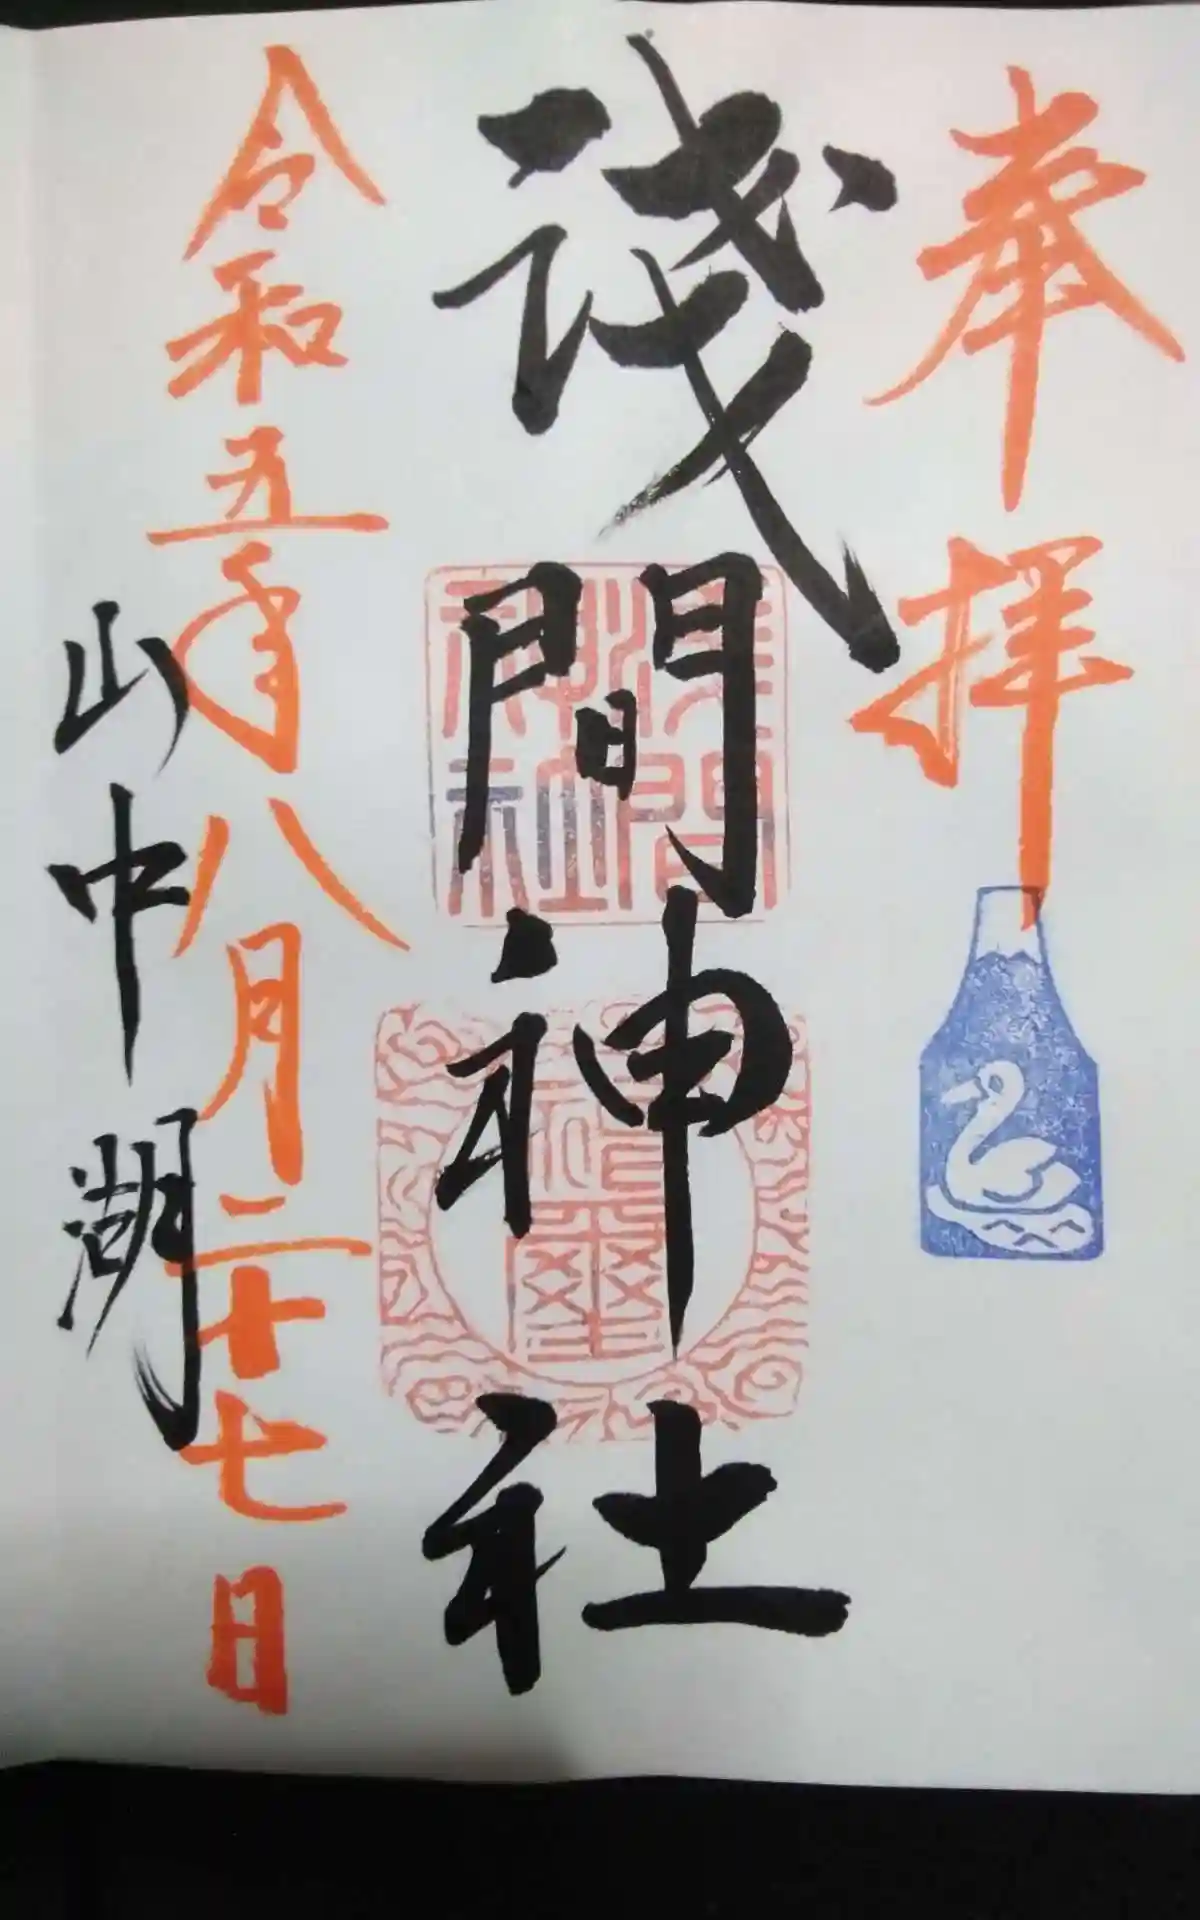 奉拝
淺間神社
淺間
神社
令和五年八月二十七日
山中湖